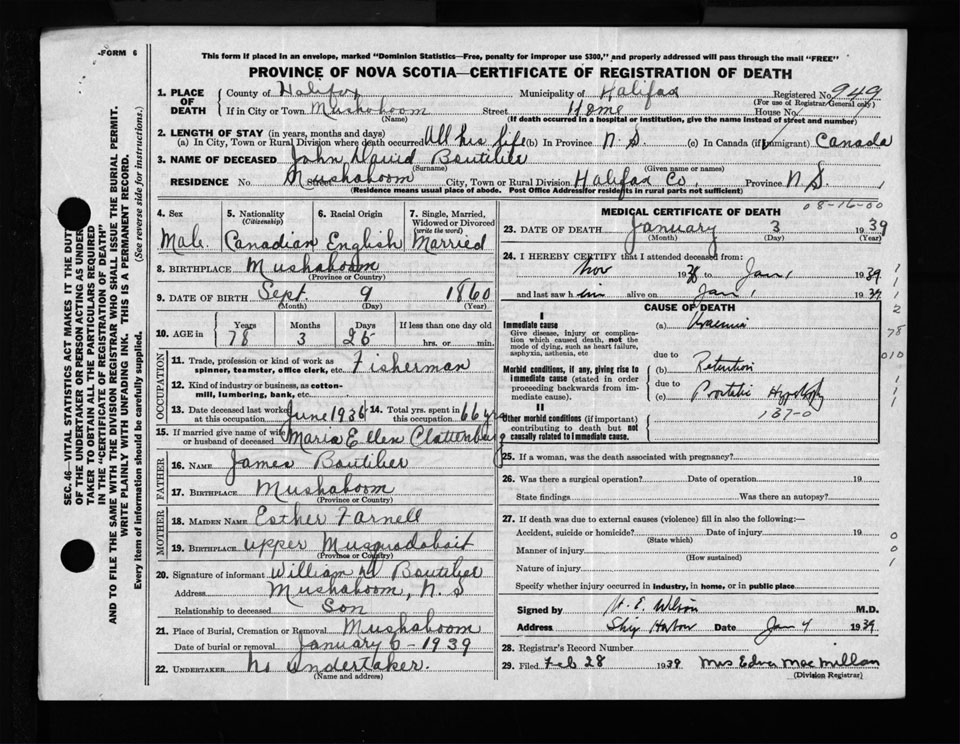 -FORM 6
This form if placed in an envelope, marked "Dominion Statistics—Free, penalty for improper use $300," and properly addressed will pass through the mail "FREE"
PROVINCE OF NOVA SCOTIA—CERTIFICATE OF REGISTRATION OF DEATH
1. PLACE OF DEATH County of Halifax Municipality of Halifax Registered No. 949
(For use of Registrar General only)
If in City or Town Mushaboom Street Home House No.
(Name) (If death occurred in a hospital or institution, give the name instead of street and number)
2. LENGTH OF STAY (in years, months and days)
(a) In City, Town or Rural Division where death occurred All his life (b) In Province N. S. (c) In Canada (if immigrant) Canada
3. NAME OF DECEASED John David Boutilier
(Surname) (Given name or names)
RESIDENCE No. Street Mushaboom City, Town or Rural Division Halifax Co, Province N.S.
(Residence means usual place of abode. Post Office Address for residents in rural parts not sufficient)
08-16-00
4. Sex 5. Nationality (Citizenship) 6. Racial Origin 7. Single, Married, Widowed or Divorced (write the word)
Male Canadian English Married
8. BIRTHPLACE Mushaboom
(Province or Country)
9. DATE OF BIRTH Sept. 9 1860
(Month) (Day) (Year)
10. AGE in Years Months Days If less than one day old
78 3 25 hrs. or min.
OCCUPATION
11. Trade, profession or kind of work as spinner, teamster, office clerk, etc. Fisherman
12. Kind of industry or business, as cotton-mill, lumbering, bank, etc.
13. Date deceased last worked at this occupation June 1936 14. Total yrs. spent in this occupation 66 yrs
15. If married give name of wife or husband of deceased Maria Ellen Clattenburg
FATHER
16. NAME James Boutilier
17. BIRTHPLACE Mushaboom
(Province or Country)
MOTHER
18. MAIDEN NAME Esther Farnell
19. BIRTHPLACE upper Musquodoboit
(Province or Country)
20. Signature of informant William Boutilier
Address Mushaboom, N. S
Relationship to deceased Son
21. Place of Burial, Cremation or Removal Mushaboom
Date of burial or removal January 6-1939
22. UNDERTAKER no undertaker.
(Name and address)
MEDICAL CERTIFICATE OF DEATH
23. DATE OF DEATH January 3 1939
(Month) (Day) (Year)
24. I HEREBY CERTIFY that I attended deceased from:
Nov 1938 to Jan, 1 1939
and last saw him alive on Jan, 1 1939
CAUSE OF DEATH
I
Immediate cause (a) Uraemia
Give disease, injury or complication which caused death, not the mode of dying, such as heart failure, asphyxia, asthenia, etc
due to
Morbid conditions, if any, giving rise to immediate cause (stated in order proceeding backwards from immediate cause). (b) Retention
due to
(c) Prostatic Hypertrophy
137-0
II
Other morbid conditions (if important) contributing to death but not causally related to immediate cause.
25. If a woman, was the death associated with pregnancy?
26. Was there a surgical operation? Date of operation 19
State findings Was there an autopsy?
27. If death was due to external causes (violence) fill in also the following:—
Accident, suicide or homicide? Date of injury 19
(State which)
Manner of injury
(How sustained)
Nature of injury
Specify whether injury occurred in industry, in home, or in public place
Signed by H. E. Wilson M.D.
Address Ship Harbour Date Jan 4 1939
28. Registrar's Record Number
29. Filed Feb 28 1939 Mrs Edna MacMillan
(Division Registrar)
SEC. 46—VITAL STATISTICS ACT MAKES IT THE DUTY
OF THE UNDERTAKER OR PERSON ACTING AS UNDER-
TAKER TO OBTAIN ALL THE PARTICULARS REQUIRED
IN THE "CERTIFICATE OF REGISTRATION OF DEATH"
AND TO FILE THE SAME WITH THE DIVISION REGISTRAR WHO SHALL ISSUE THE BURIAL PERMIT.
WRITE PLAINLY WITH UNFADING INK. THIS IS A PERMANENT RECORD.
Every item of information should be carefully supplied. (See reverse side for instructions.)